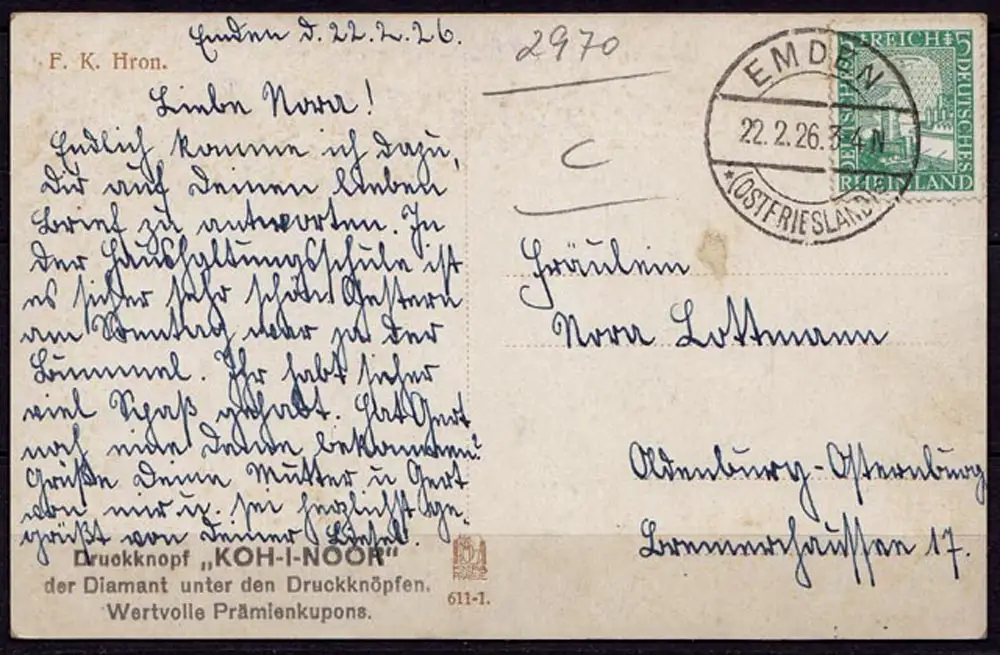 Emden d. 22.2.26.
F. K. Hron.
Liebe Nora!
Endlich komme ich dazu,
Dir auf Deinen lieben
Brief zu antworten. In
der Haushaltungsschule ist
es sicher sehr schön. Gestern
am Sonntag war ja der
Bummel. Ihr habt sicher
viel Spaß gehabt. Hat Gert
noch eine Dame bekommen?
Grüße Deine Mutter u Gert
von mir u. sei herzlichst ge-
grüßt von Deiner Liesel.
Druckknopf „KOH-I-NOOR"
der Diamant unter den Druckknöpfen.
Wertvolle Prämienkupons.
611-1.
2970
C
EMDEN
22.2.26.3-4N
*(OSTFRIESLAND)
REICH 5
DEUTSCHES
RHEINLAND
Fräulein
Nora Lottmann
Oldenburg-Osternburg
Bremerchaussee 17.